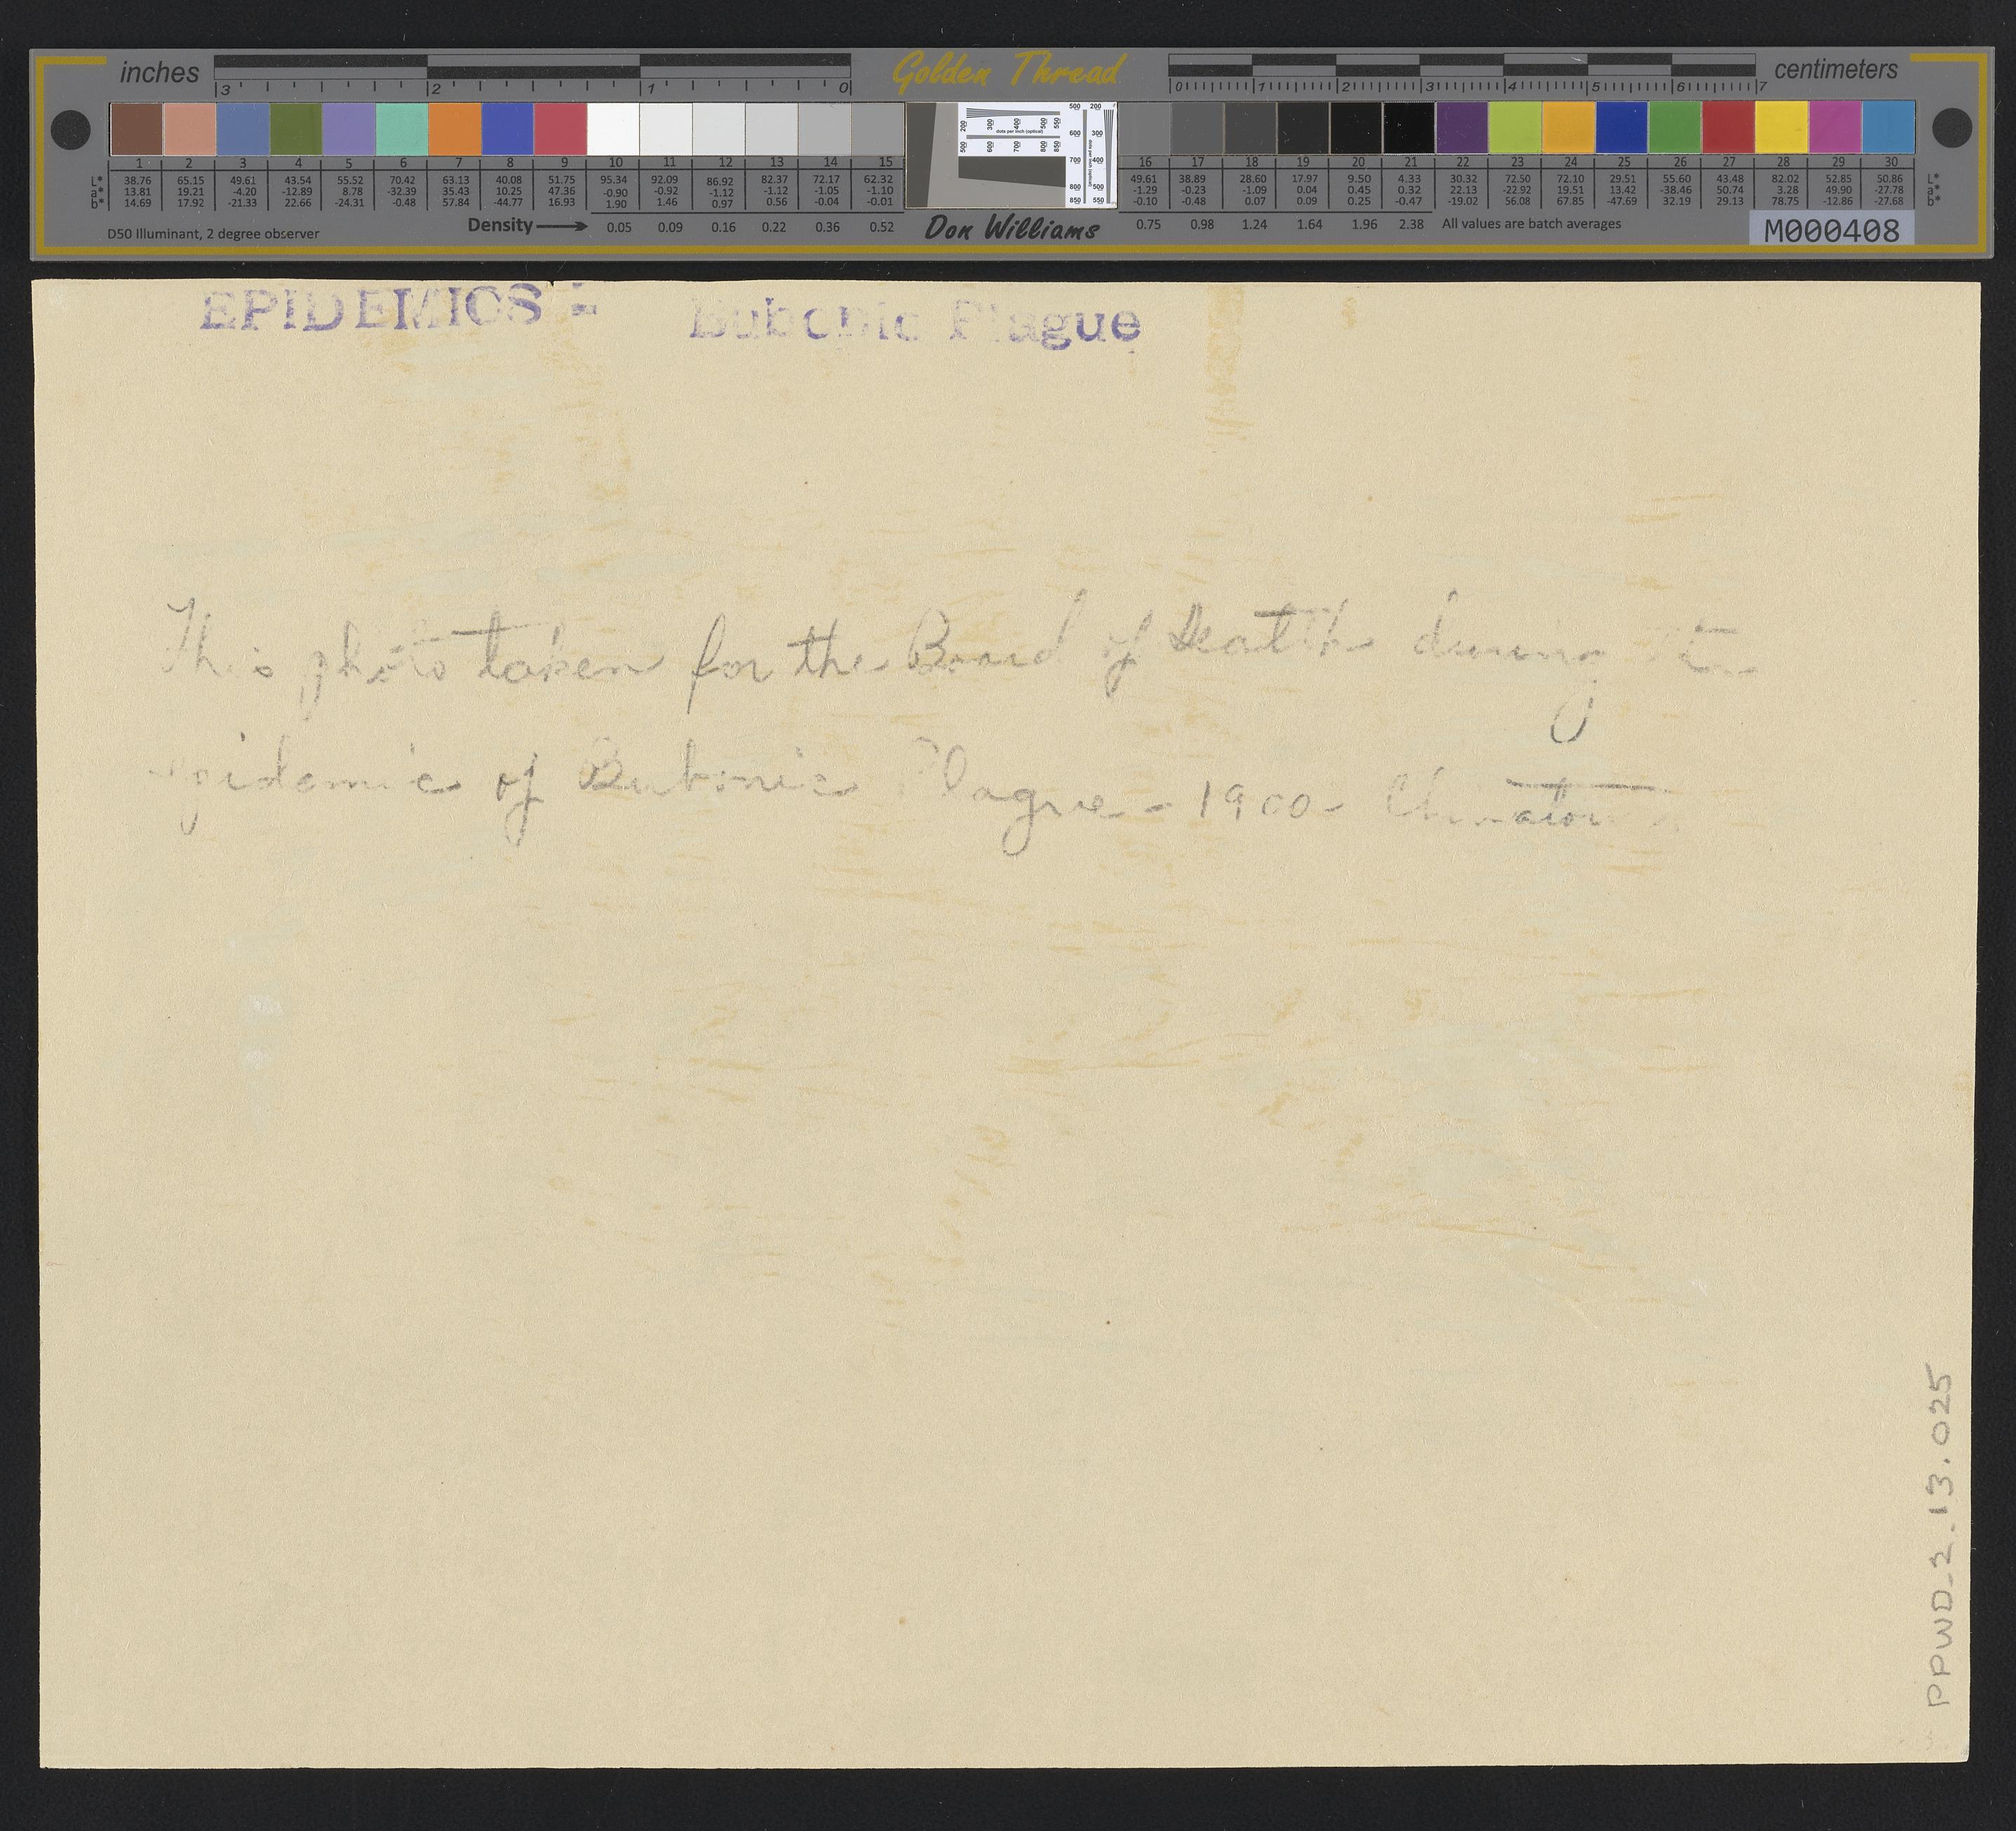 inches Golden Thread centimeters
3 2 1 0 0 1 2 3 4 5 6 7
200 300 400 500 550
dots per inch (optical)
500 600 700 800 850
500 200
600 300
700 400
800 500
850 550
1 2 3 4 5 6 7 8 9 10 11 12 13 14 15 16 17 18 19 20 21 22 23 24 25 26 27 28 29 30
L* 38.76 65.15 49.61 43.54 55.52 70.42 63.13 40.08 51.75 95.34 92.09 86.92 82.37 72.17 62.32 49.61 38.89 28.60 17.97 9.50 4.33 30.32 72.50 72.10 29.51 55.60 43.48 82.02 52.85 50.86 L*
a* 13.81 19.21 -4.20 -12.89 8.78 -32.39 35.43 10.25 47.36 -0.90 -0.92 -1.12 -1.12 -1.05 -1.10 -1.29 -0.23 -1.09 0.04 0.45 0.32 22.13 -22.92 19.51 13.42 -38.46 50.74 3.28 49.90 -27.78 a*
b* 14.69 17.92 -21.33 22.66 -24.31 -0.48 57.84 -44.77 16.93 1.90 1.46 0.97 0.56 -0.04 -0.01 -0.10 -0.48 0.07 0.09 0.25 -0.47 -19.02 56.08 67.85 -47.69 32.19 29.13 78.75 -12.86 -27.68 b*
D50 Illuminant, 2 degree observer Density 0.05 0.09 0.16 0.22 0.36 0.52 Don Williams 0.75 0.98 1.24 1.64 1.96 2.38 All values are batch averages M000408
EPIDEMICS - Bubonic Plague
This photo taken for the Board of Health during the
epidemic of Bubonic Plague - 1900 - Chinatown
PPWD_2.13.025